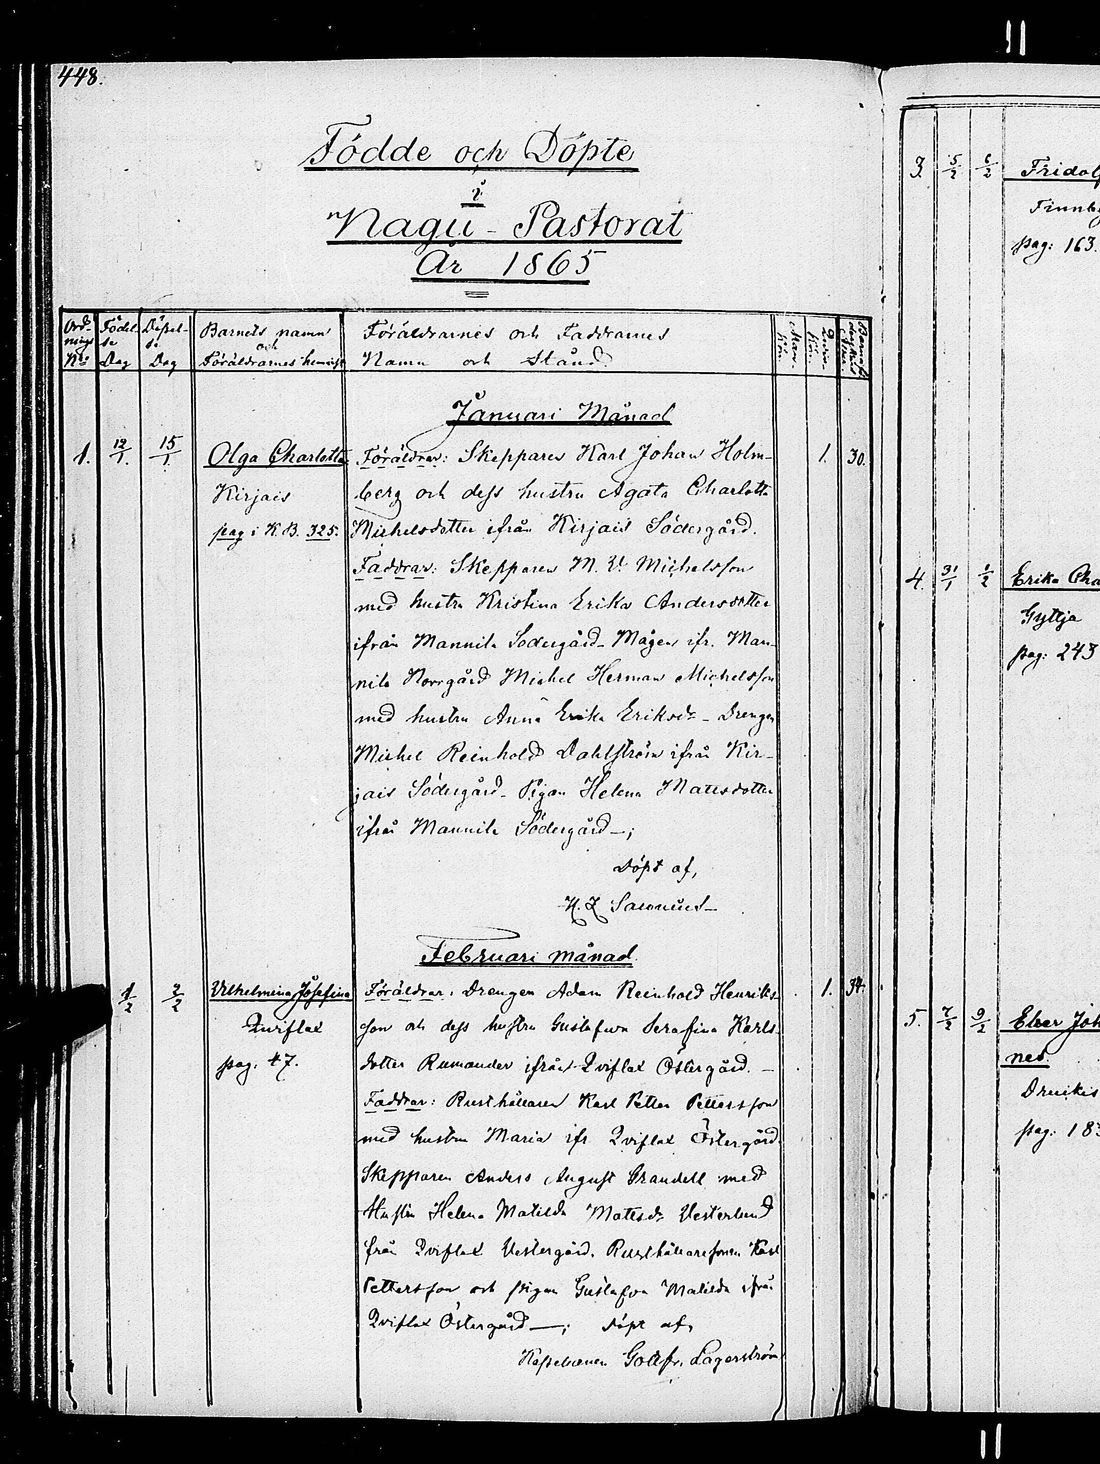 448.
Födde och Döpte
i
Nagu Pastorat
År 1865
Ord-nings No
Födel-se Dag
Döpel-se Dag
Barnets namn och Föräldrarnes hemvist
Föräldrarnes och Faddrarnes
Namn och Stånd
Januari Månad
1. 12/1. 15/1. Olga Charlotta Föräldrar: Skepparen Karl Johan Holm- 1. 30.
Kirjais berg och dess hustru Agata Charlotta
pag: i K.B. 325. Michelsdotter ifrån Kirjais Södergård.
Faddrar: Skepparen M. Michelsson
med hustru Kristina Erika Andersdotter
ifrån Mannila Södergård - Mågen ifr. Man-
nila Norrgård Michel Herman Michelsson
med hustru Anna Erika Eriksdr - Drengen
Michel Reinhold Dahlström ifrån Kir-
jais Södergård - Pigan Helena Matsdotter
ifrån Mannila Södergård -;
Döpt af,
Februari månad.
1/2 2/2 Vilhelmina Josefina Föräldrar: Drengen Adam Reinhold Henriks- 1. 34.
Qviflax son och dess hustru Gustafva Serafina Karls
pag. 47. dotter Rumander ifrån Qviflax Östergård. -
Faddrar: Rusthållaren Karl Petter Pettersson
med hustru Maria ifr Qviflax Östergård.
Skepparen Anders August Grandell med
Hustru Helena Matilda Mattsdr Vesterlund
från Qviflax Vestergård. Rusthållaresonen Karl
Pettersson och pigan Gustafva Matilda ifrån
Qviflax Östergård -; Döpt af,
Kapellanen Gottfr. Lagerström
3. 5/2 6/2 Fridolf
pag: 163.
4. 31/1 1/2 Erika Cha
Gyttja
pag: 243
5. 7/2 9/2 Elver Joh
nes.
pag: 183